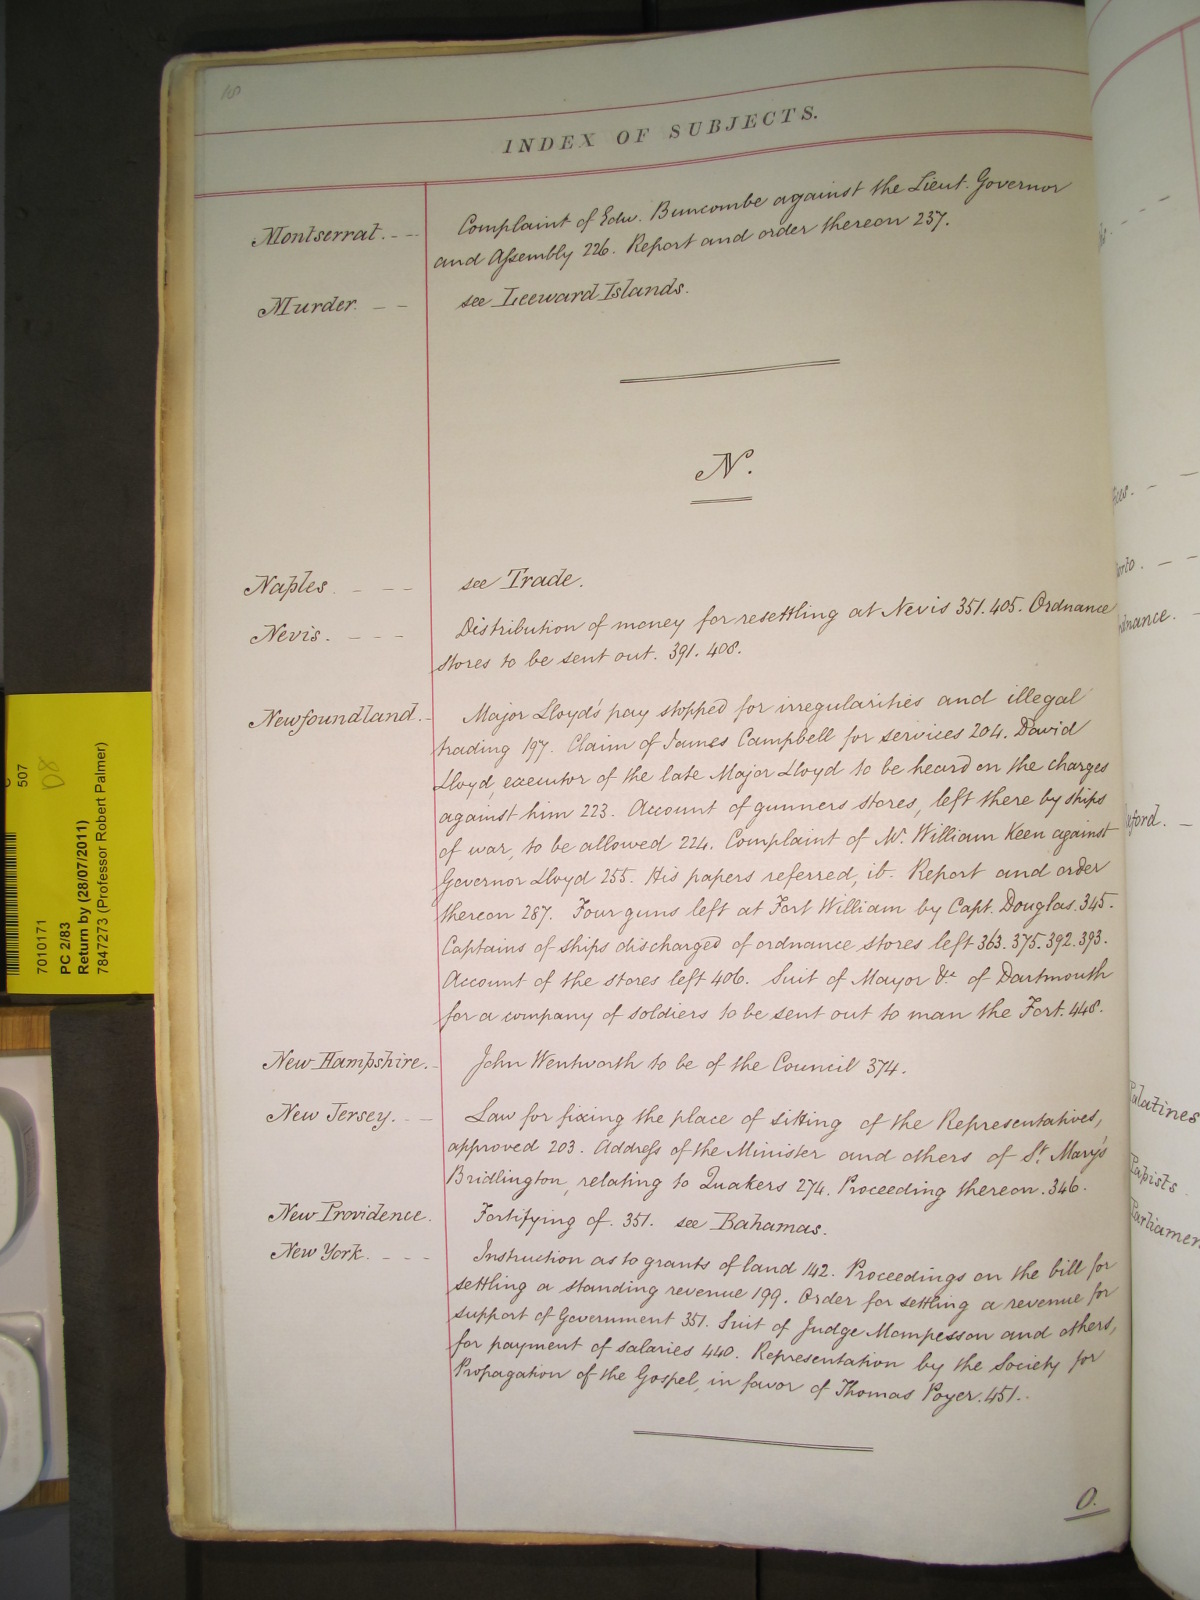 18
INDEX OF SUBJECTS.
Montserrat. - - Complaint of Edw. Buncombe against the Lieut. Governor
and Assembly 226. Report and order thereon 237.
Murder. - - see Leeward Islands.
N.
Naples. - - - see Trade.
Nevis. - - - Distribution of money for resettling at Nevis 351. 405. Ordnance
stores to be sent out. 391. 408.
Newfoundland. - Major Lloyd's pay stopped for irregularities and illegal
trading 197. Claim of James Campbell for services 204. David
Lloyd, executor of the late Major Lloyd to be heard on the charges
against him 223. Account of gunners stores, left there by ships
of war, to be allowed 224. Complaint of Mr. William Keen against
Governor Lloyd 255. His papers referred, ib. Report and order
thereon 287. Four guns left at Fort William by Capt. Douglas. 345.
Captains of ships discharged of ordnance stores left 363. 375. 392. 393.
Account of the stores left 406. Suit of Mayor &c. of Dartmouth
for a company of soldiers to be sent out to man the Fort. 448.
New Hampshire. - John Wentworth to be of the Council 374.
New Jersey. - - Law for fixing the place of sitting of the Representatives,
approved 203. Address of the Minister and others of St. Mary's
Bridlington, relating to Quakers 274. Proceeding thereon. 346.
New Providence. Fortifying of. 351. see Bahamas.
New York. - - - Instruction as to grants of land 142. Proceedings on the bill for
settling a standing revenue 199. Order for settling a revenue for
support of Government 351. Suit of Judge Mompesson and others,
for payment of salaries 440. Representation by the Society for
Propagation of the Gospel, in favor of Thomas Poyer. 451.
O.
507
08
7010171
PC 2/83
Return by (28/07/2011)
7847273 (Professor Robert Palmer)